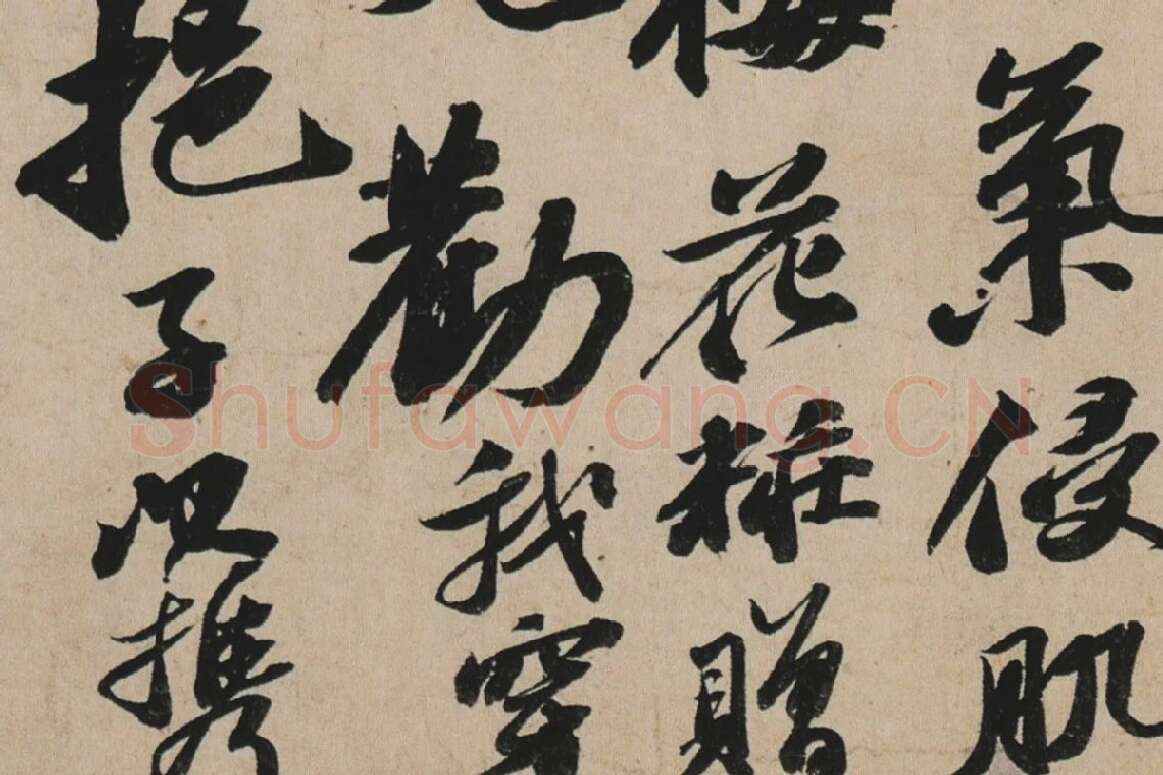 氣侵肌
梅花粧贈
勸我穿
子攜
Shufawang.CN